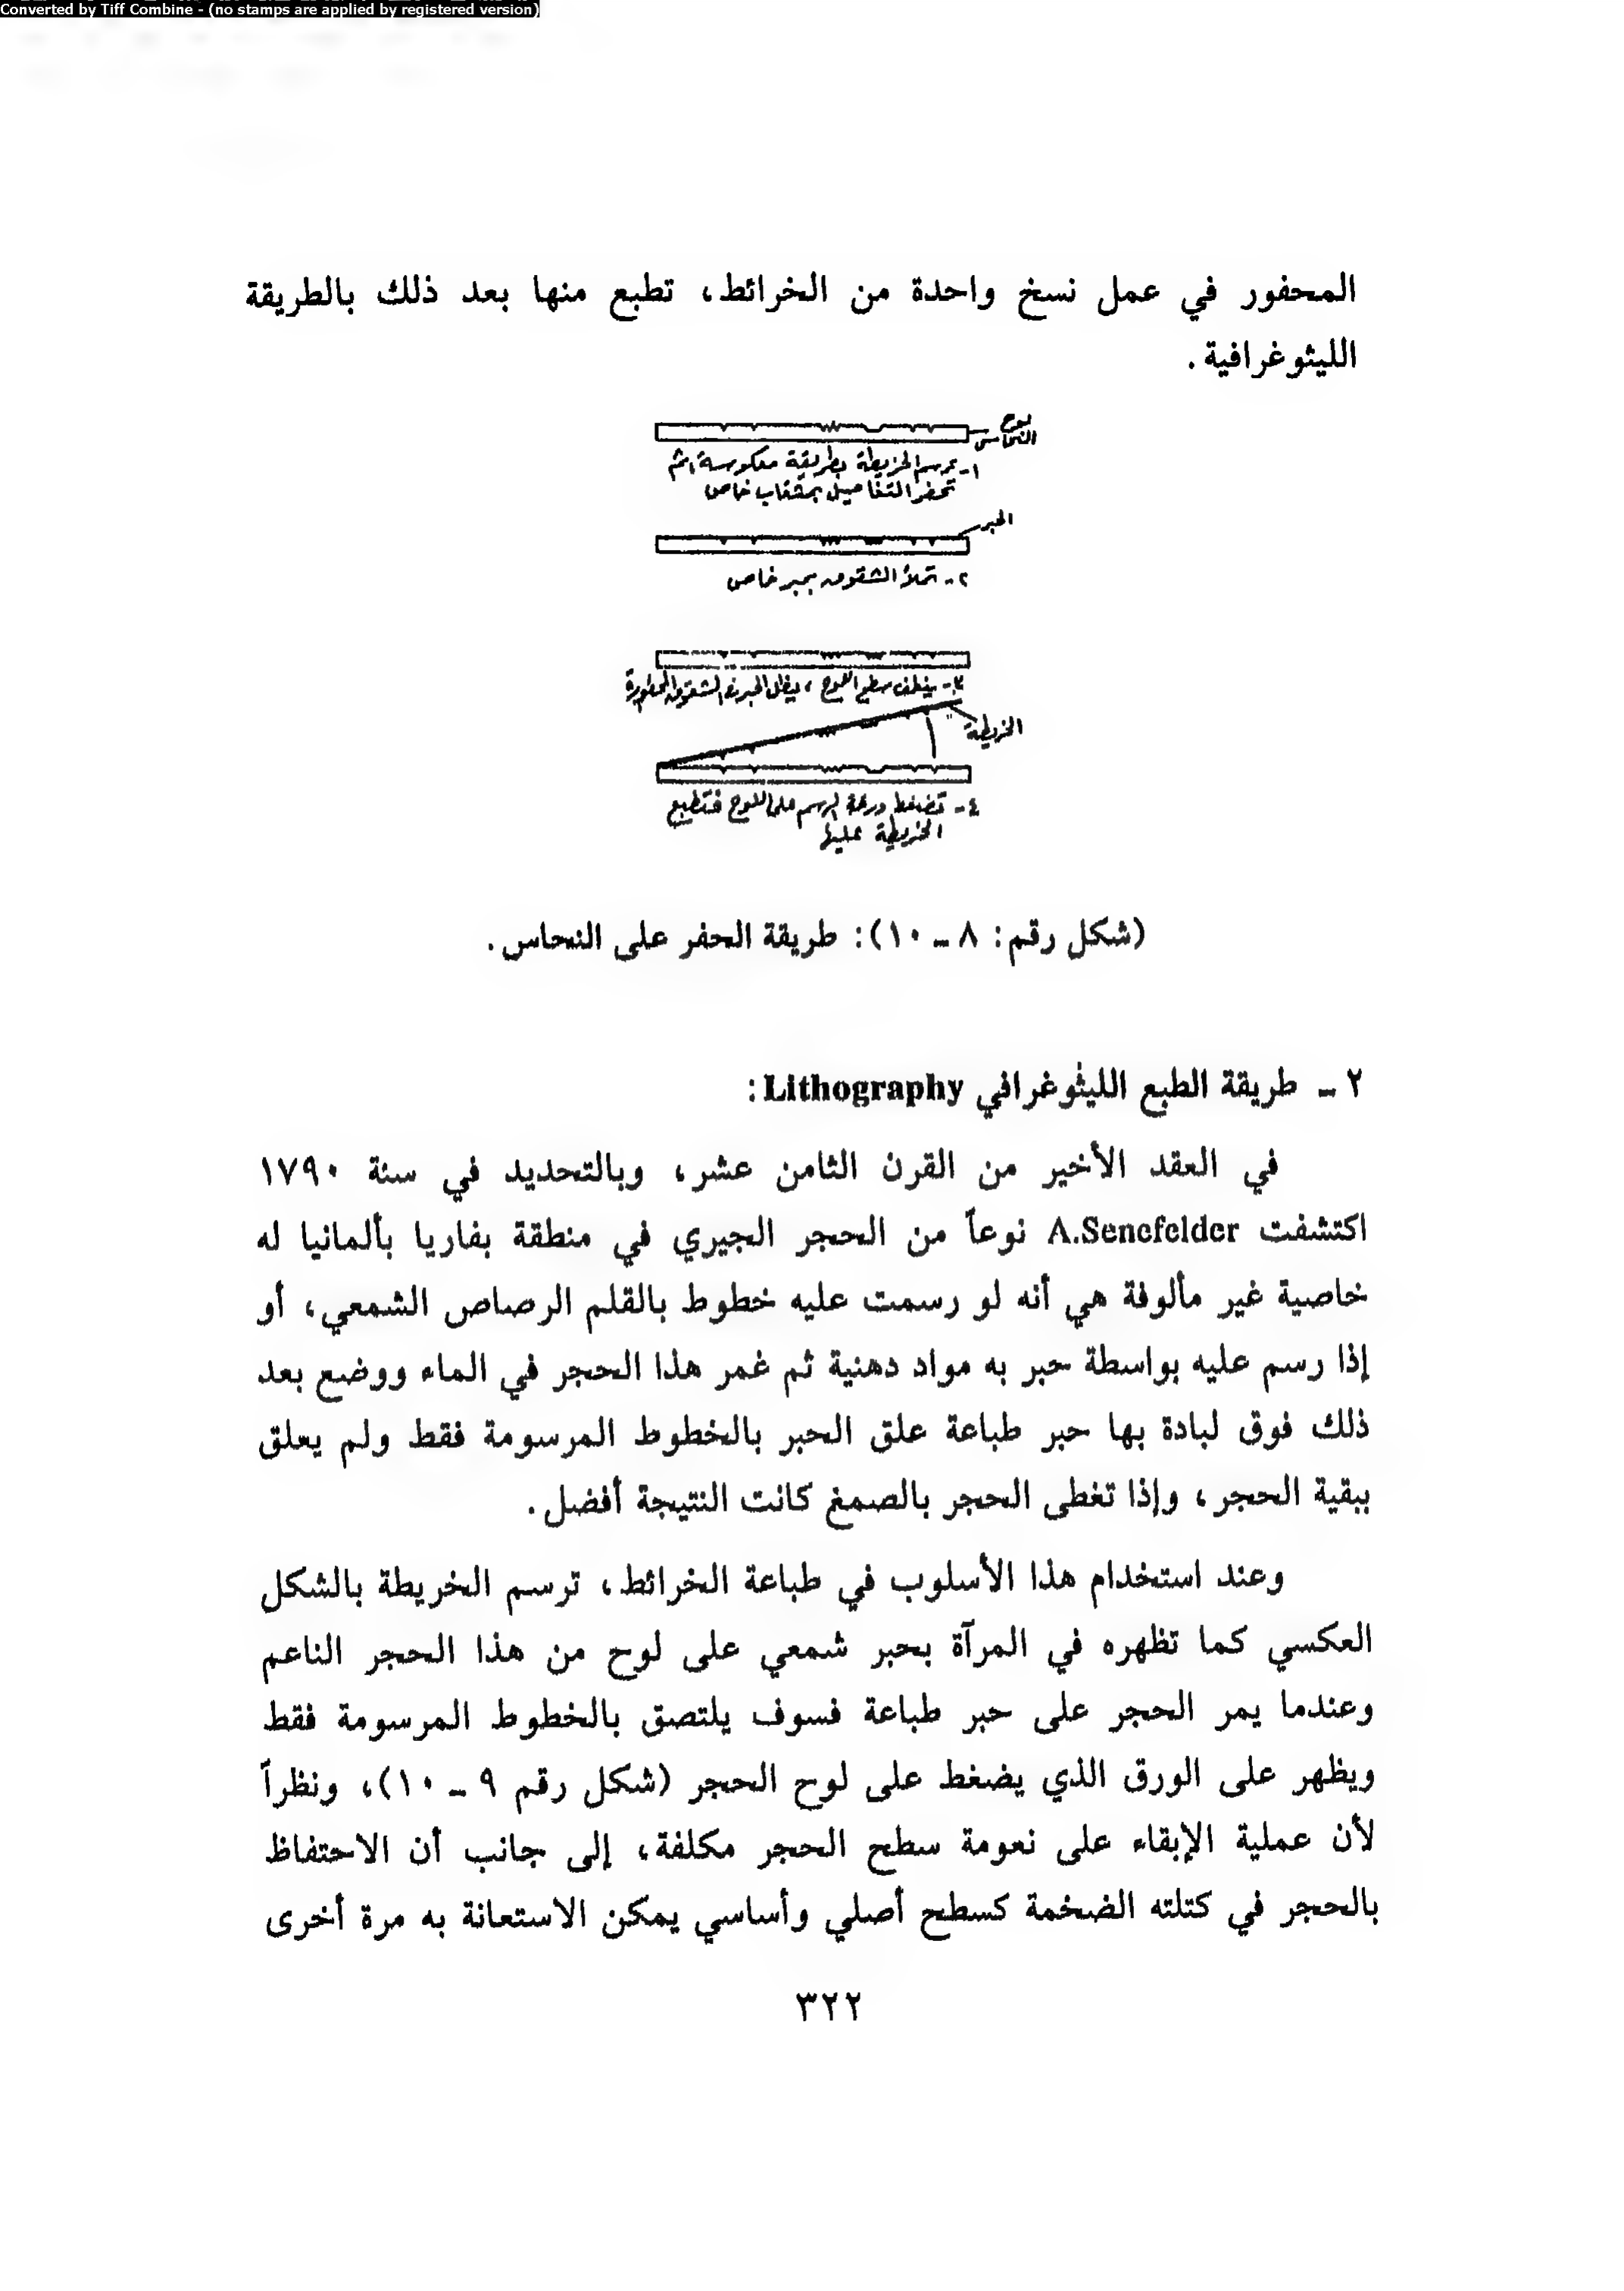 Converted by Tiff Combine - (no stamps are applied by registered version)
المحفور في عمل نسخ واحدة من الخرائط، تطبع منها بعد ذلك بالطريقة
الليثوغرافية .
لوح
النحاس
١- ترسم الخريطة بطريقة معكوسة، ثم
تحفر التفاصيل بمثقاب خاص
الحبر
٢- تملأ الشقوق بحبر خاص
٣- ينظف سطح اللوح ، ويظل الحبر في الشقوق المحفورة
الخريطة
٤- تضغط ورقة الرسم على اللوح فتطبع
الخريطة عليها
(شكل رقم: ٨ ــ ١٠): طريقة الحفر على النحاس .
٢ ــ طريقة الطبع الليثوغرافي Lithography :
في العقد الأخير من القرن الثامن عشر، وبالتحديد في سنة ١٧٩٠
اكتشفت A.Senefelder نوعاً من الحجر الجيري في منطقة بفاريا بألمانيا له
خاصية غير مألوفة هي أنه لو رسمت عليه خطوط بالقلم الرصاص الشمعي، أو
إذا رسم عليه بواسطة حبر به مواد دهنية ثم غمر هذا الحجر في الماء ووضع بعد
ذلك فوق لبادة بها حبر طباعة علق الحبر بالخطوط المرسومة فقط ولم يعلق
ببقية الحجر، وإذا تغطى الحجر بالصمغ كانت النتيجة أفضل .
وعند استخدام هذا الأسلوب في طباعة الخرائط، ترسم الخريطة بالشكل
العكسي كما تظهره في المرآة بحبر شمعي على لوح من هذا الحجر الناعم
وعندما يمر الحجر على حبر طباعة فسوف يلتصق بالخطوط المرسومة فقط
ويظهر على الورق الذي يضغط على لوح الحجر (شكل رقم ٩ ــ ١٠)، ونظراً
لأن عملية الإبقاء على نعومة سطح الحجر مكلفة، إلى جانب أن الاحتفاظ
بالحجر في كتلته الضخمة كسطح أصلي وأساسي يمكن الاستعانة به مرة أخرى
٣٢٢